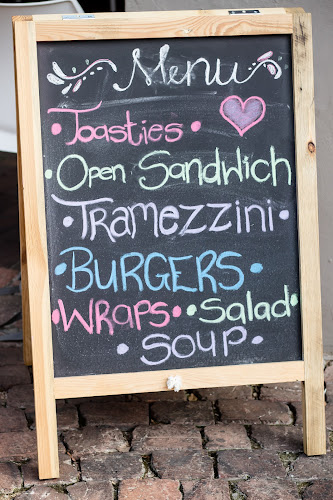 Menu
• Toasties •
• Open Sandwich
• Tramezzini •
• BURGERS •
• WRAPS • Salad •
• SOUP •